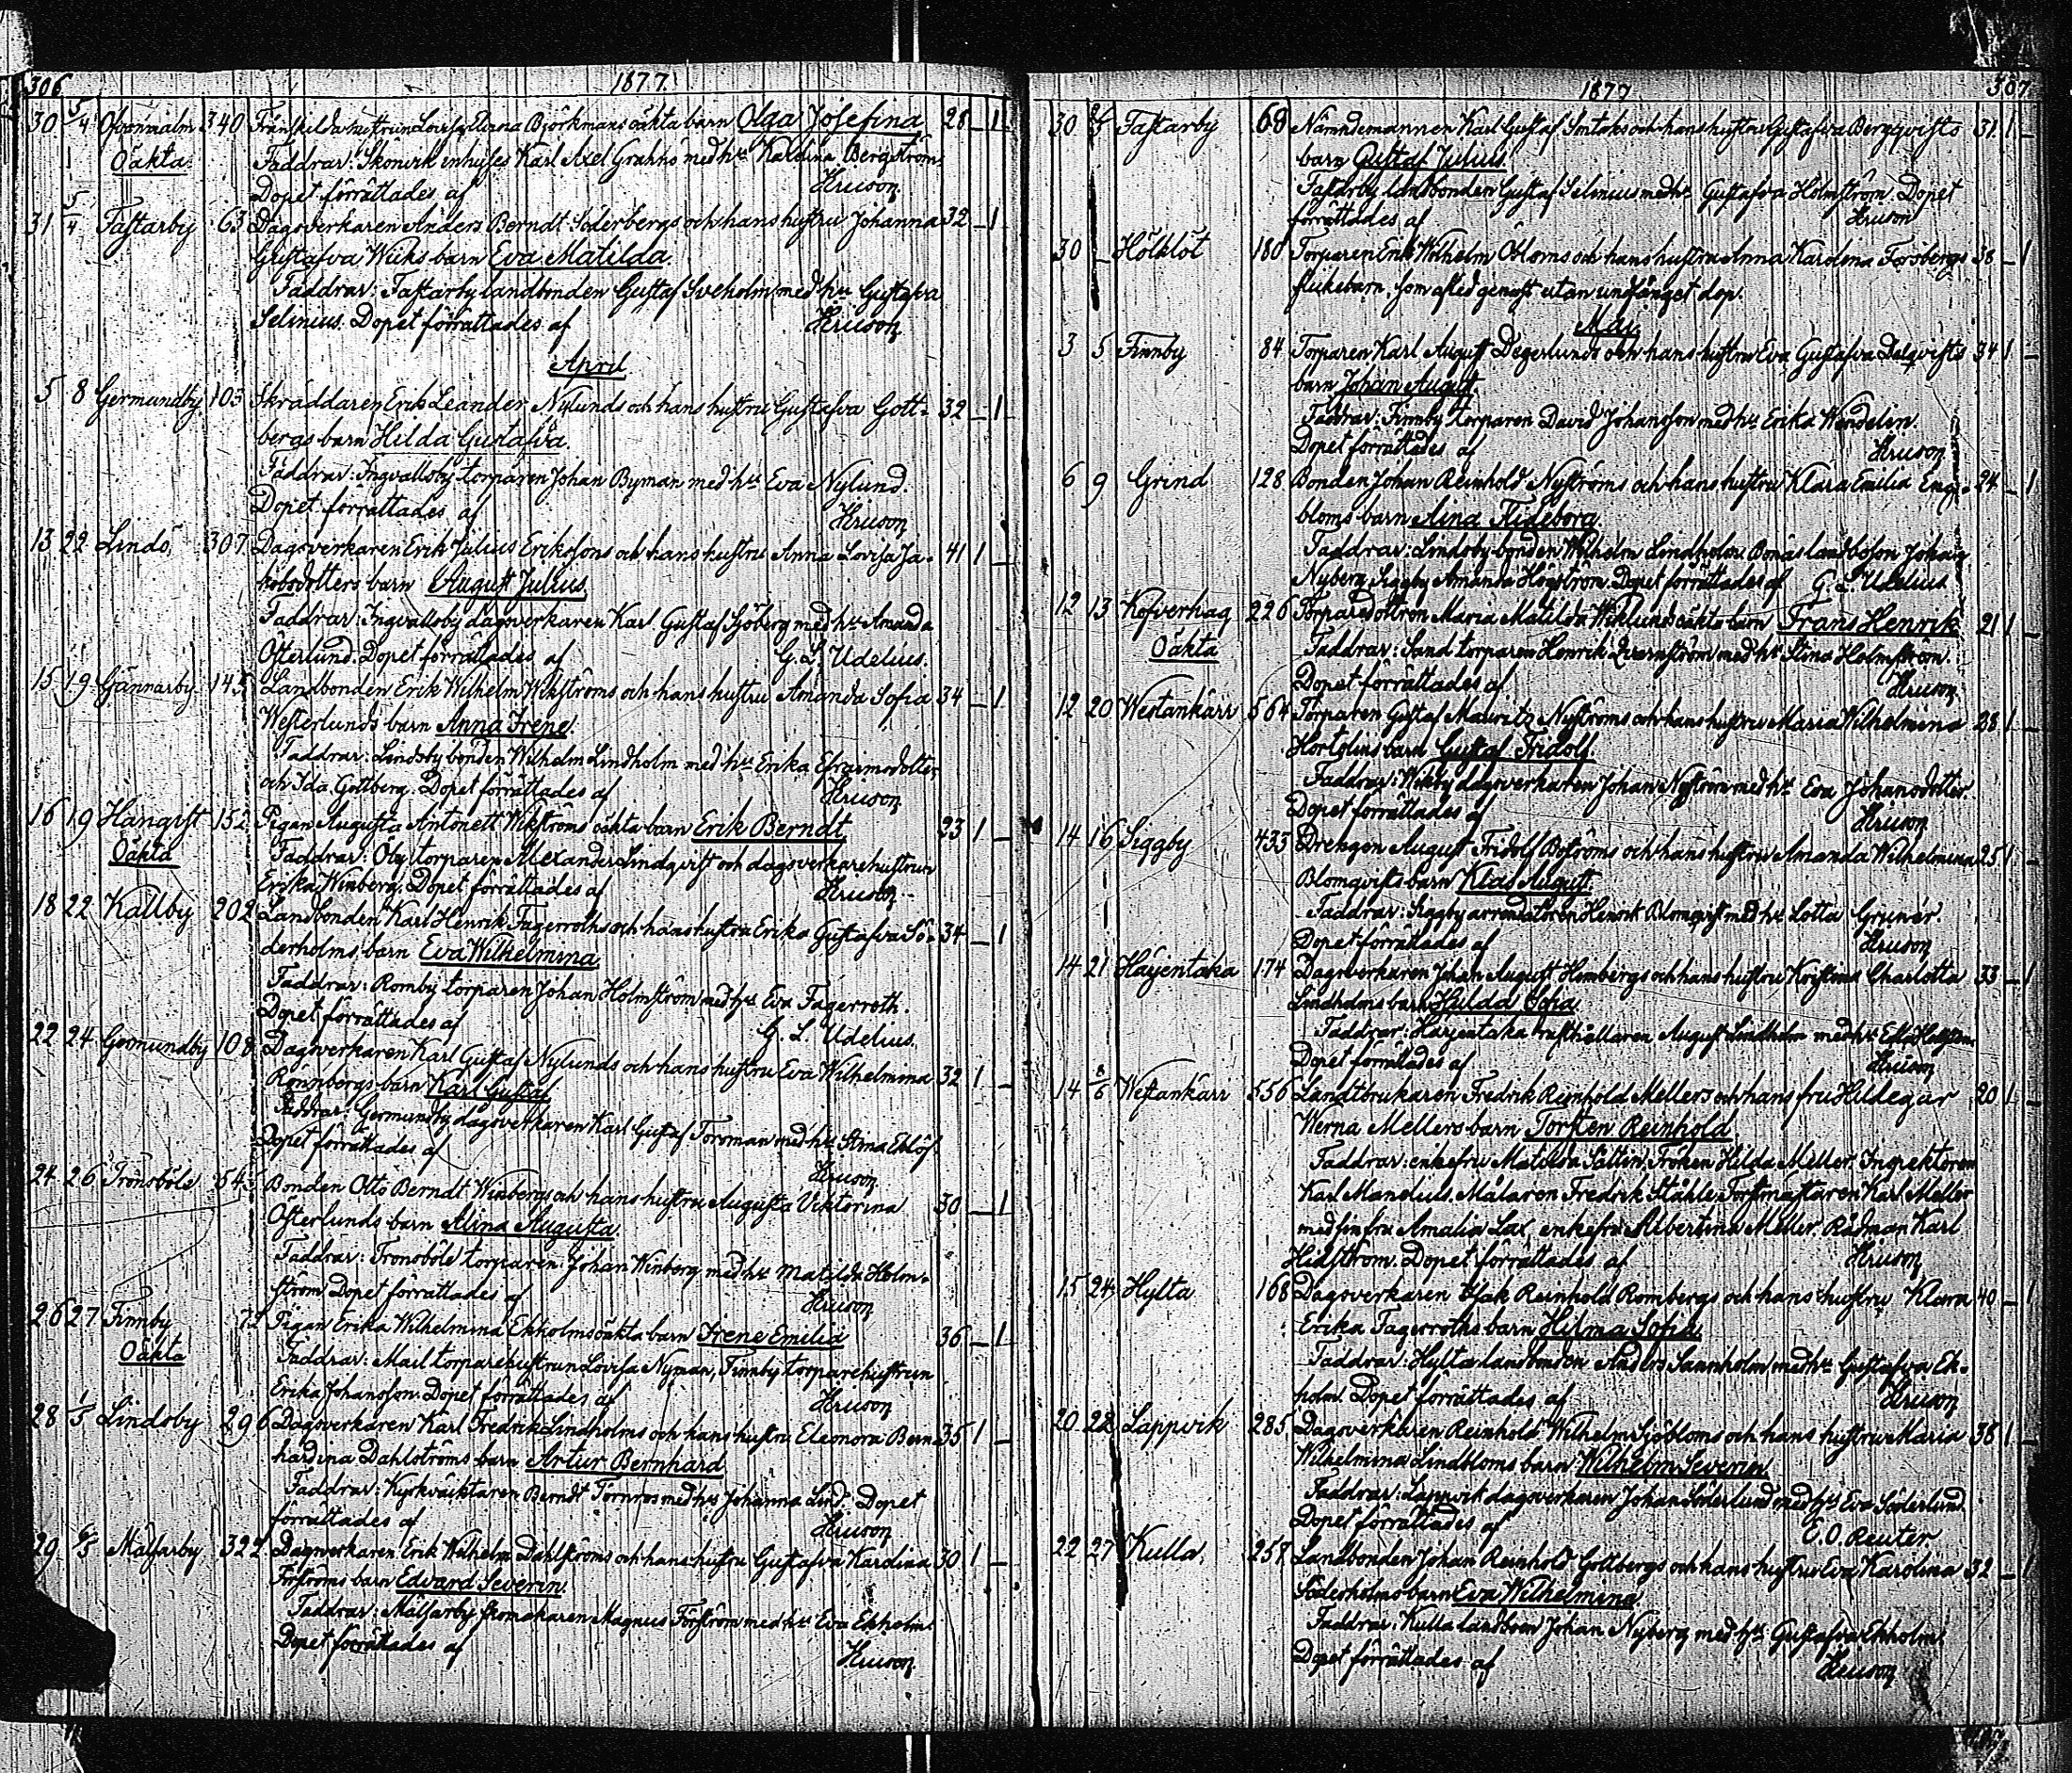 306
1877.
30 5/4 340 Frånskilda hustrun Lovisa Björkmans oäkta barn Olga Josefina 28 _ 1
Oäkta Faddrar: inhyses Karl Axel med h. Karolina Bergström.
Dopet förrättades af Hruson
31 5/4 Fastarby 63 Dagsverkaren Anders Berndt Söderbergs och hans hustru Johanna 32 _ 1
Gustafva Wiiks barn Eva Matilda.
Faddrar: Fastarby landbonden Gustaf Sveholm med hu Gustafva
Selenius. Dopet förrättades af Hruson
April
5 8 Germundby 103 Skräddaren Erik Leander Nylunds och hans hustru Gustafva Gott- 32 _ 1
bergs barn Hilda Gustafva
Faddrar: Ingvallsby torparen Johan Byman med hu Eva Nylund.
Dopet förrättades af Hruson
13 22 Lindö 307 Dagsverkaren Erik Julius Erikssons och hans hustru Anna Lovisa Ja- 41 1 _
kobsdotters barn August Julius.
Faddrar: Ingvallsby dagsverkaren Karl Gustaf Sjöberg med hu Amanda
Österlund. Dopet förrättades af G. L. Udelius.
15 19 Gännarby 145 Landbonden Erik Wilhelm Wikströms och hans hustru Amanda Sofia 34 _ 1
Westerlunds barn Anna Irene.
Faddrar: Lindsby bonden Wilhelm Lindholm med hu Erika Efraimsdotter
och Ida Gottberg. Dopet förrättades af Hruson
16 19 Hangist 152 Pigan Augusta Antonett Wikströms oäkta barn Erik Berndt 23 1 _
Oäkta Faddrar: Öby torparen Alexander Lindqvist och dagsverkarehustrun
Erika Winberg. Dopet förrättades af Hruson
18 22 Källby 202 Landbonden Karl Henrik Fagerroths och hans hustru Erika Gustafva Sö- 34 _ 1
derholms barn Eva Wilhelmina
Faddrar: Romby torparen Johan Holmström med hu Eva Fagerroth.
Dopet förrättades af G. L. Udelius.
22 24 Germundby 108 Dagsverkaren Karl Gustaf Nylunds och hans hustru Eva Wilhelmina 32 1 _
Rönnbergs barn Karl Gustaf
Faddrar: Germundby dagsverkaren Karl Gustaf Forsman med hu Stina Eklöf.
Dopet förrättades af Hruson
24 26 Trönsböle 54 Bonden Otto Berndt Winbergs och hans hustru Augusta Viktorina 30 _ 1
Österlunds barn Alina Augusta.
Faddrar: Tronsböle torparen Johan Winberg med hu Matilda Holm-
ström Dopet förrättades af Hruson
26 27 Finnby 72 Pigan Erika Wilhelmina Ekholms oäkta barn Irene Emilia 36 _ 1
Oäkta Faddrar: torparehustrun Lovisa Nyman, Finnby torparehustrun
Erika Johansson. Dopet förrättades af Hruson
28 1/5 Lindsby 296 Dagsverkaren Karl Fredrik Lindholms och hans hustru Eleonora Bern- 35 1 _
hardina Dahlströms barn Artur Bernhard
Faddrar: Kyrkväktaren Berndt Törnros med hu Johanna Lind. Dopet
förrättades af Hruson
29 6/5 Mälsarby 322 Dagsverkaren Erik Wilhelm Dahlströms och hans hustru Gustafva Karolina 30 1 _
Forströms barn Edvard Severin.
Faddrar: Mälsarby skomakaren Magnus Forström med hu Eva Ekholm.
Dopet förrättades af Hruson
1877
307
30 Fastarby 68 Nämndemannen Karl Gustaf och hans hustru Gustafva Bergqvists 31 1 _
barn Gustaf Julius.
Fastarby landbonden Gustaf Selenius med hu Gustafva Holmström. Dopet
förrättades af Hruson
30 _ Hölklöt 180 Torparen Erik Wilhelm Öbloms och hans hustru Anna Karolina Forsbergs 38 _ 1
flickebarn, som afled genast utan undfånget dop.
Maj.
3 5 Finnby 84 Torparen Karl August Degerlunds och hans hustru Eva Gustafva Dalqvists 34 1 _
barn Johan August
Faddrar: Finnby torparen David Johansson med hu Erika Wendelin.
Dopet förrättades af Hruson
6 9 Grind 128 Bonden Johan Reinhold Nyströms och hans hustru Klara Emilia Eng- 24 _ 1
bloms barn Aina Hideborg.
Faddrar: Lindsby bonden Wilhelm Lindholm. Bonäs landboson Johan
Nyberg, Siggby Amanda Högström. Dopet förrättades af G. L. Udelius
12 13 Kofverhag 226 Torparedottren Maria Matilda Wiklunds oäkta barn Frans Henrik 21 1 _
Oäkta Faddrar: Sand torparen Henrik Qvarnström med hu Stina Holmström.
Dopet förrättades af Hruson
12 20 Westankärr 564 Torparen Gustaf Mauritz Nyströms och hans hustru Maria Wilhelmina 28 1 _
Hortelins barn Gustaf Fridolf.
Faddrar: Wikby dagsverkaren Johan Nyström med hu Eva Johansdotter.
Dopet förrättades af Hruson
14 16 Siggby 433 Drengen August Fridolf Boströms och hans hustru Amanda Wilhelmina 25 1 _
Blomqvists barn Klas August
Faddrar: Siggby arrendatoren Henrik Blomqvist med hu Lotta Grunér.
Dopet förrättades af Hruson
14 21 Harjentaka 174 Dagsverkaren Johan August Hembergs och hans hustru Kristina Charlotta 33 _ 1
Lindholms barn Hulda Sofia
Faddrar: Harjentaka rusthållaren August Lindholm med hu
Dopet förrättades af Hruson
14 8/6 Westankärr 556 Landtbrukaren Fredrik Reinhold Mellers och hans fru Hildegar 20 1 _
Werna Mellers barn Torsten Reinhold
Faddrar: enkefru Matilda Fröken Hilda Meller, Inspektoren
Karl Mandelius. Målaren Fredrik Ståhle, Forstmästaren Karl Meller
med sin fru Amalia Lax, enkefru Albertina Meller. Rådman Karl
Hidström. Dopet förrättades af Hruson
15 24 Hylta 168 Dagsverkaren Isak Reinhold Rombergs och hans hustru Klara 40 _ 1
Erika Fagerroths barn Hilma Sofia
Faddrar: Hylta landbonden Anders Sannholm med hu Gustafva Ek-
holm. Dopet förrättades af Hruson
20 22 Lappvik 285 Dagsverkaren Reinhold Wilhelm Sjöbloms och hans hustru Maria 38 1 _
Wilhelmina Lindbloms barn Wilhelm Severin
Faddrar: Lappvik dagsverkaren Johan Söderlund med hu Eva Söderlund.
Dopet förrättades af E. O. Reuter
22 27 Kulla 257 Landbonden Johan Reinhold Gottbergs och hans hustru Eva Karolina 32 _ 1
Söderholms barn Eva Wilhelmina
Faddrar: Kulla landboen Johan Nyberg med hu Gustafva Ekholm.
Dopet förrättades af Hruson